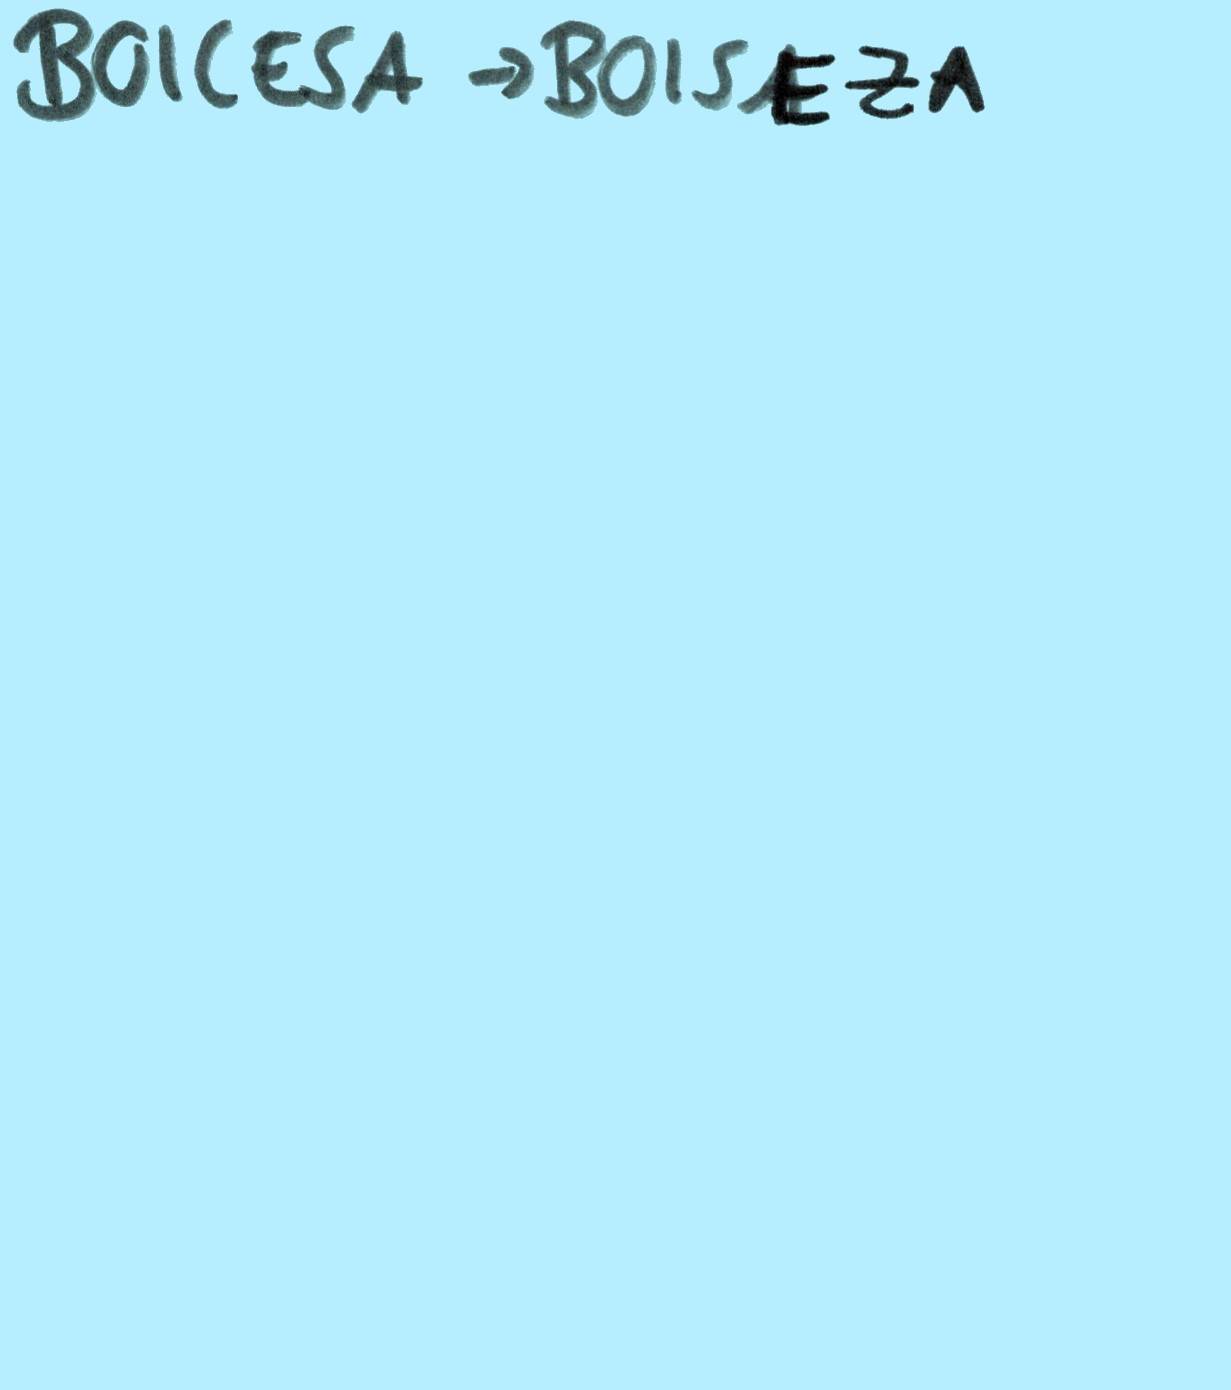 BOICESA → BOISEZA